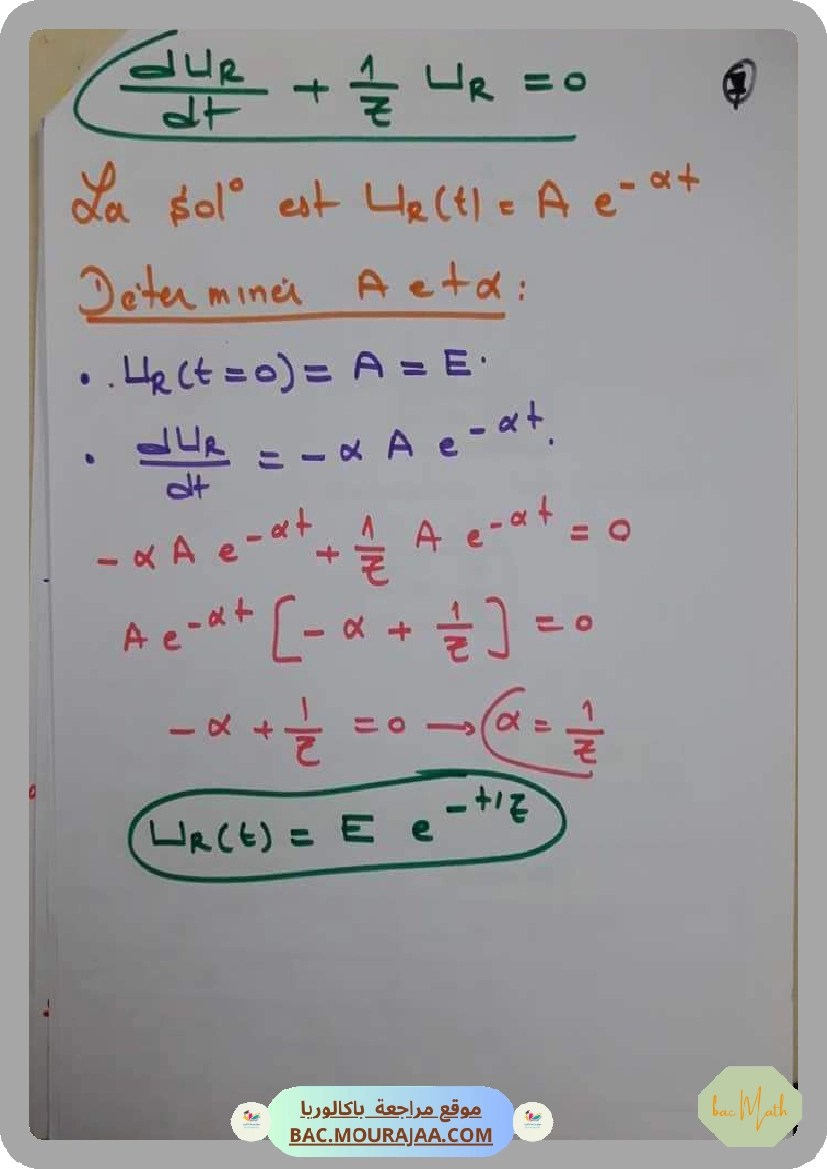 dU_R/dt + 1/τ U_R = 0
La sol° est U_R(t) = A e^{-αt}
Déterminer A et α :
• . U_R(t=0) = A = E .
• dU_R/dt = -α A e^{-αt} .
-α A e^{-αt} + 1/τ A e^{-αt} = 0
A e^{-αt} [-α + 1/τ] = 0
-α + 1/τ = 0 → α = 1/τ
U_R(t) = E e^{-t/τ}
موقع مراجعة باكالوريا
BAC.MOURAJAA.COM
bac Math